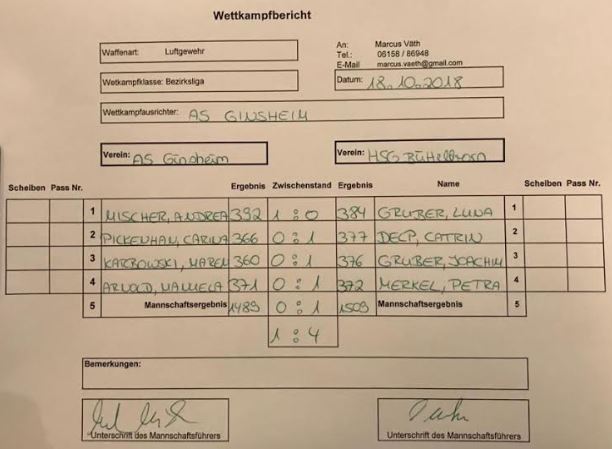 Wettkampfbericht
Waffenart: Luftgewehr
An: Marcus Väth
Tel.: 06158 / 86948
E-Mail marcus.vaeth@gmail.com
Wetkampfklasse: Bezirksliga
Datum: 18.10.2018
Wettkampfausrichter: AS GINSHEIM
Verein: AS Ginsheim
Verein: HSG Büttelborn
Scheiben Pass Nr. Ergebnis Zwischenstand Ergebnis Name Scheiben Pass Nr.
1 MISCHER, ANDREA 392 1 : 0 384 GRUBER, LUNA 1
2 PICKENHAN, CARINA 366 0 : 1 377 DECP, CATRIN 2
3 KARBOWSKI, MAREN 360 0 : 1 376 GRUBER, JOACHIM 3
4 ARNOLD, MANUELA 371 0 : 1 372 MERKEL, PETRA 4
5 Mannschaftsergebnis 1489 0 : 1 1509 Mannschaftsergebnis 5
1 : 4
Bemerkungen:
Unterschrift des Mannschaftsführers
Unterschrift des Mannschaftsführers